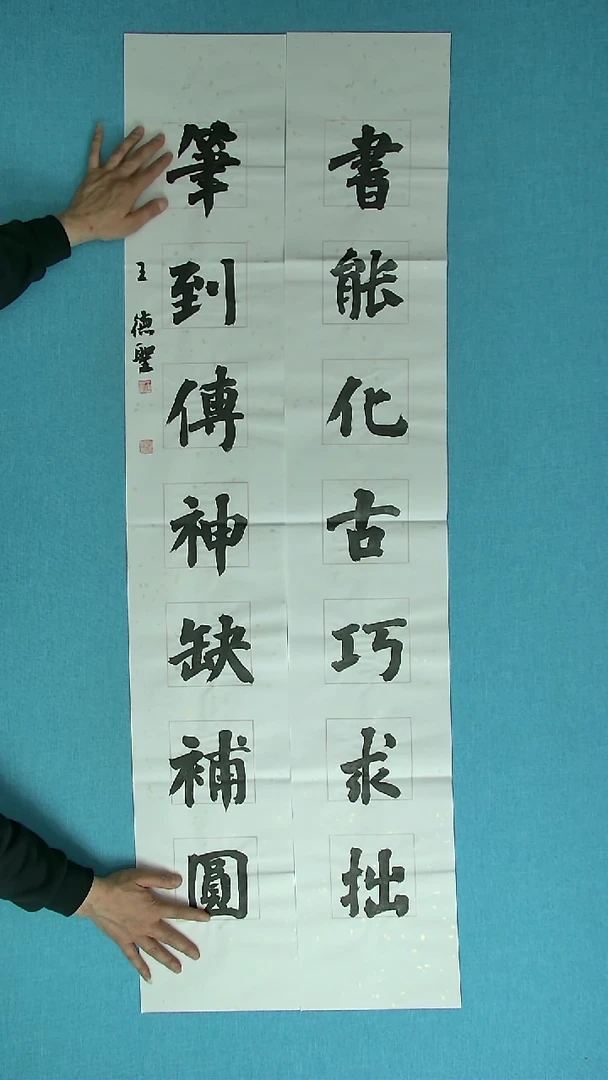 書能化古巧求拙
筆到傳神缺補圓
王德聖